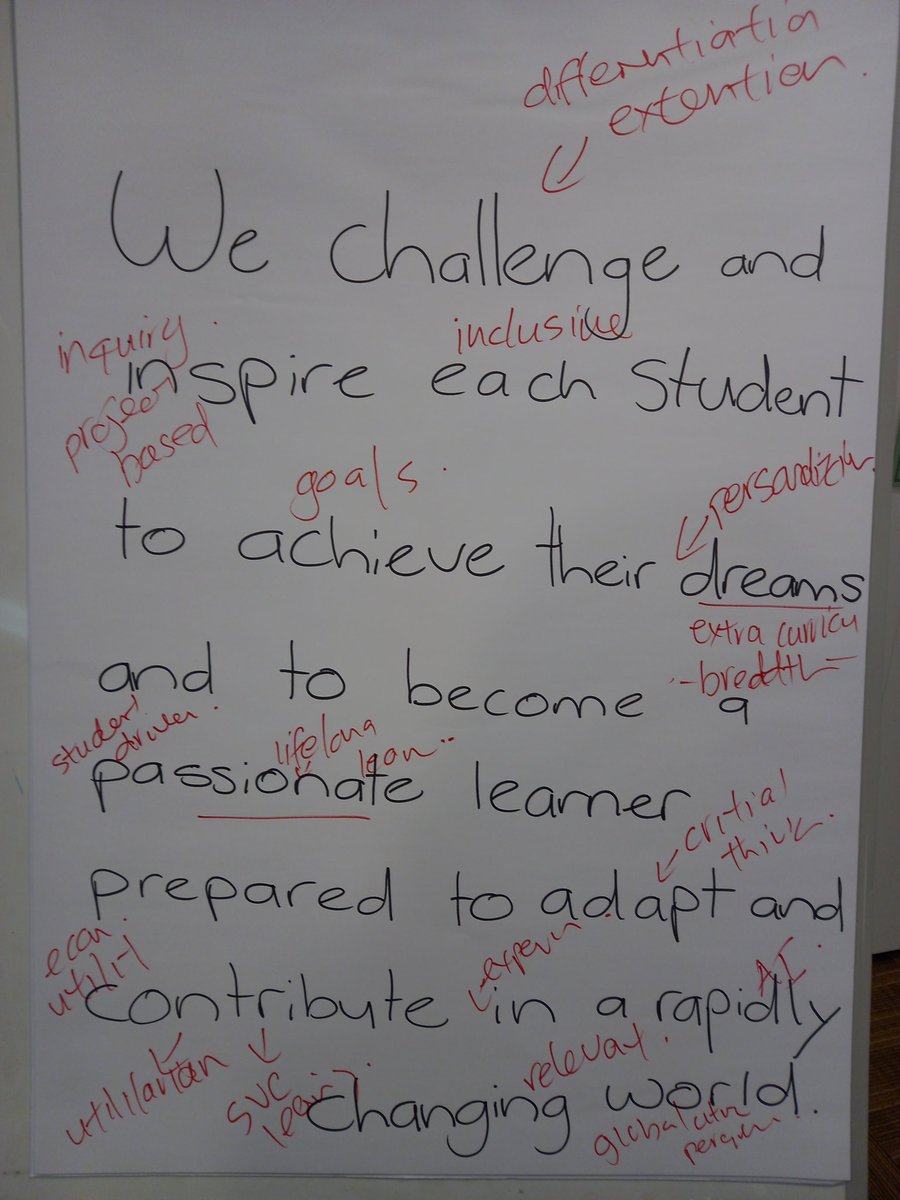 differentiatia
extention.
We challenge and
inquiry.
inclusive
inspire each student
project
based
goals.
to achieve their dreams
extra curricu
-breddth-
and to become a
student
driven.
lifelong
lean..
passionate learner
critical
think.
prepared to adapt and
econ.
experien.
AI.
contribute in a rapidly
utilitarian
svc
relevat.
changing world.
global